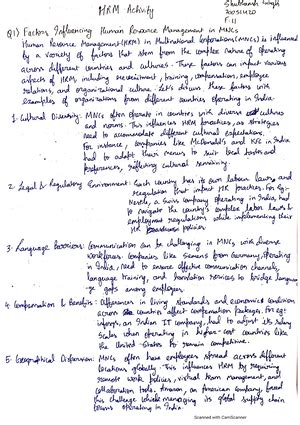 HRM-Activity
Shubhansh Singh
F-11
Q1) Factors Influencing Human Resource Management in MNCs
Human Resource Management (HRM) in Multinational Corporations (MNCs) is influenced
by a variety of factors that stem from the complex nature of operating
across different countries and cultures. These factors can impact various
aspects of HRM, including recruitment, training, compensation, employee
relations, and organizational culture. Let's discuss these factors with
examples of organizations from different countries operating in India.
1. Cultural Diversity: MNCs often operate in countries with diverse cultures
and norms. This influences HRM practices, as strategies
need to accommodate different cultural expectations.
For instance, companies like McDonald's and KFC in India
had to adapt their menus to suit local tastes and
preferences, reflecting cultural sensitivity.
2. Legal & Regulatory Environment: Each country has its own labour laws and
Regulation that impact HR practices. For eg:-
Nestle, a Swiss company operating in India, had
to navigate the country's complex labor laws &
employment regulations while implementing their
HR policies.
3. Language Barriers: Communication can be challenging in MNCs with diverse
workforces. Companies like Siemens from Germany, operating
in India, need to ensure effective communication channels,
language training, and translation services to bridge language
gaps among employees.
4. Compensation & Benefits: Differences in living standards and economic condition
across countries affect compensation packages. For eg:
infosys, an Indian IT company, had to adjust its salary
scales when operating in higher-cost countries like
the United States to remain competitive.
5. Geographical Dispersion: MNCs often have employees spread across different
locations globally. This influences HRM by requiring
remote work policies, virtual team management, and
collaboration tools. Amazon, an American company, faced
this challenge while managing its global supply chain
teams operating in India.
Scanned with CamScanner